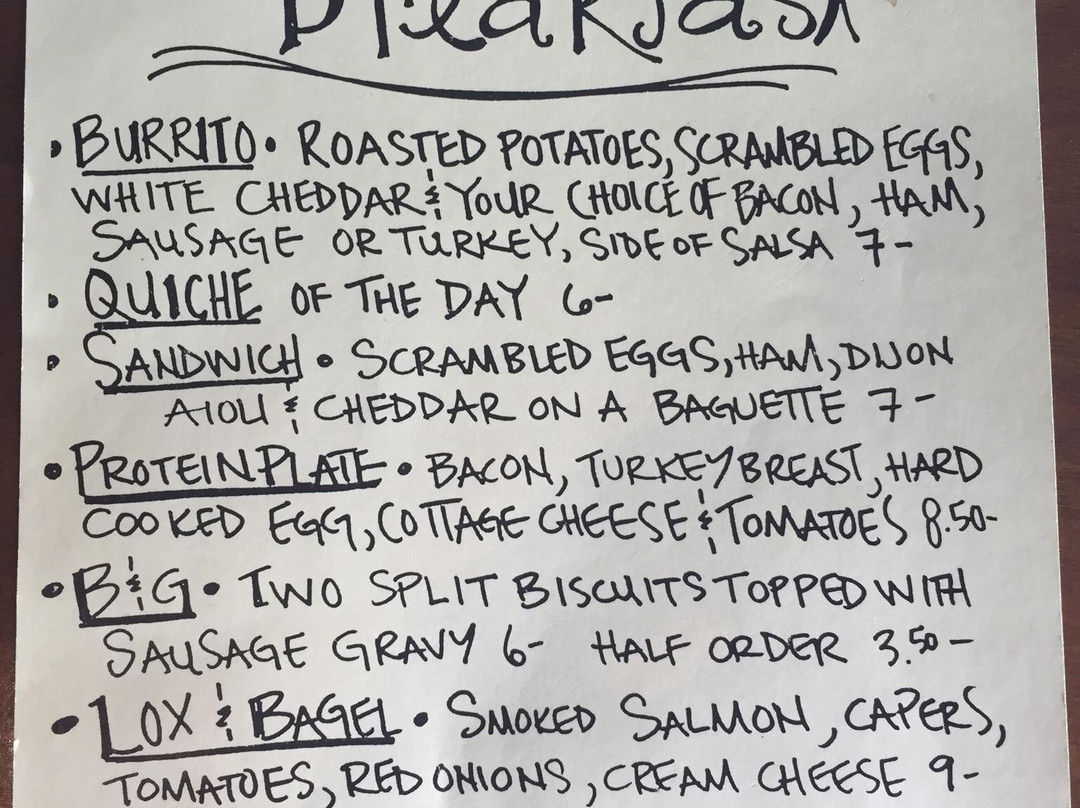 Breakfast
• BURRITO • ROASTED POTATOES, SCRAMBLED EGGS,
WHITE CHEDDAR & YOUR CHOICE OF BACON, HAM,
SAUSAGE OR TURKEY, SIDE OF SALSA 7-
• QUICHE OF THE DAY 6-
• SANDWICH • SCRAMBLED EGGS, HAM, DIJON
AIOLI & CHEDDAR ON A BAGUETTE 7-
• PROTEIN PLATE • BACON, TURKEY BREAST, HARD
COOKED EGG, COTTAGE CHEESE & TOMATOES 8.50-
• B&G • TWO SPLIT BISCUITS TOPPED WITH
SAUSAGE GRAVY 6- HALF ORDER 3.50-
• LOX & BAGEL • SMOKED SALMON, CAPERS,
TOMATOES, RED ONIONS, CREAM CHEESE 9-